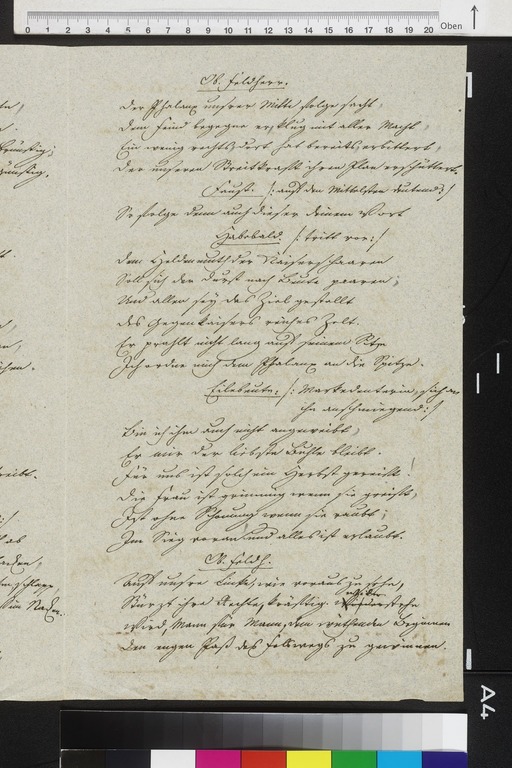 0 1 2 3 4 5 6 7 8 9 10 11 12 13 14 15 16 17 18 19 20 Oben
Ob. Feldherr.
Der Phalanx unsrer Mitte folge sacht,
Dem Feind begegne er, klug mit aller Macht,
Ein wenig rechts, dort hat bereits, erbittert,
Der unseren Streitkraft ihren Plan erschüttert.
Faust. /: auf den Mittelsten deutend:/
So folge denn auch dieser deinem Wort
Habebald /: tritt vor:/
Dem Heldenmuth der Kaiserschaaren
Soll sich der Durst nach Beute paaren;
Und allen sey das Ziel gestellt
Des Gegenkaisers reiches Zelt.
Er prahlt nicht lang auf seinem Sitze
Ich ordne mich dem Phalanx an die Spitze.
Eilebeute. /: Marketenterin, sich an
ihn anschmiegend:/
Bin ich ihm auch nicht angeweibt,
Er mir der liebste Buhle bleibt.
Für uns ist solch ein Herbst gereift!
Die Frau ist grimmig wenn sie greift,
Ist ohne Schonung wenn sie raubt;
Im Sieg voran! und alles ist erlaubt.
Ob. Feldh.
Auf unsre Linke, wie voraus zu sehn,
Stürzt ihre Rechte, kräftig.
Wird, Mann für Mann, dem wüthenden Beginnen
Den engen Paß des Felswegs zu gewinnen.
A4